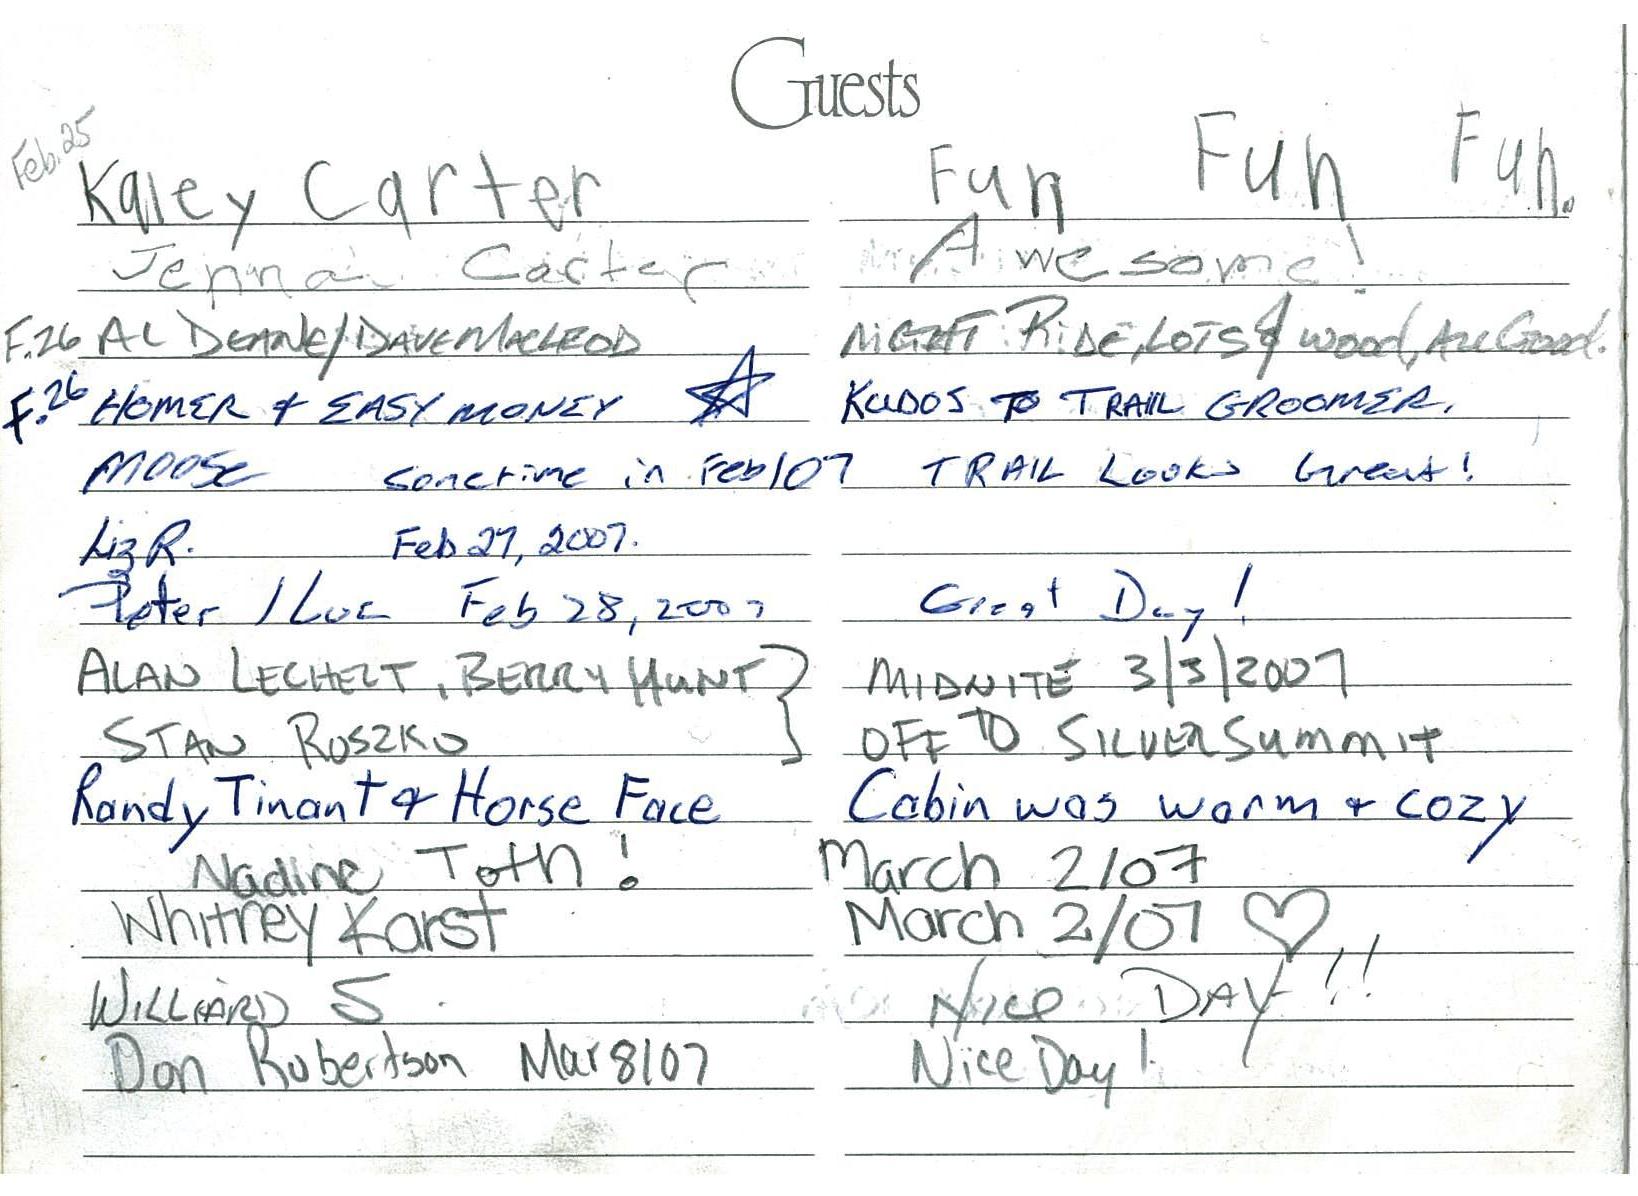 Guests
Feb. 25
Kaley Carter Fun Fun Fun.
Jenna Carter Awesome!
F.26 AL DEANE/DAVE MACLEOD NIGHT RIDE, LOTS of wood, ALL Good.
F.26 HOMER & EASY MONEY KUDOS TO TRAIL GROOMER.
MOOSE sometime in Feb/07 TRAIL LOOKS Great!
Liz R. Feb 27, 2007.
Peter / Luc Feb 28, 2007 Great Day!
ALAN LECHELT, BERRY HUNT } MIDNITE 3/3/2007
STAN ROSZKO OFF TO SILVER SUMMIT
Randy Tinant & Horse Face Cabin was warm + cozy
Nadine Toth! March 2/07
Whitney Karst March 2/07
WILLIARD S Nice DAY!!
Don Robertson Mar 8/07 Nice Day!